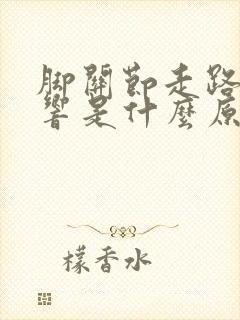 脚關節走路
響是什麼原
檬香水